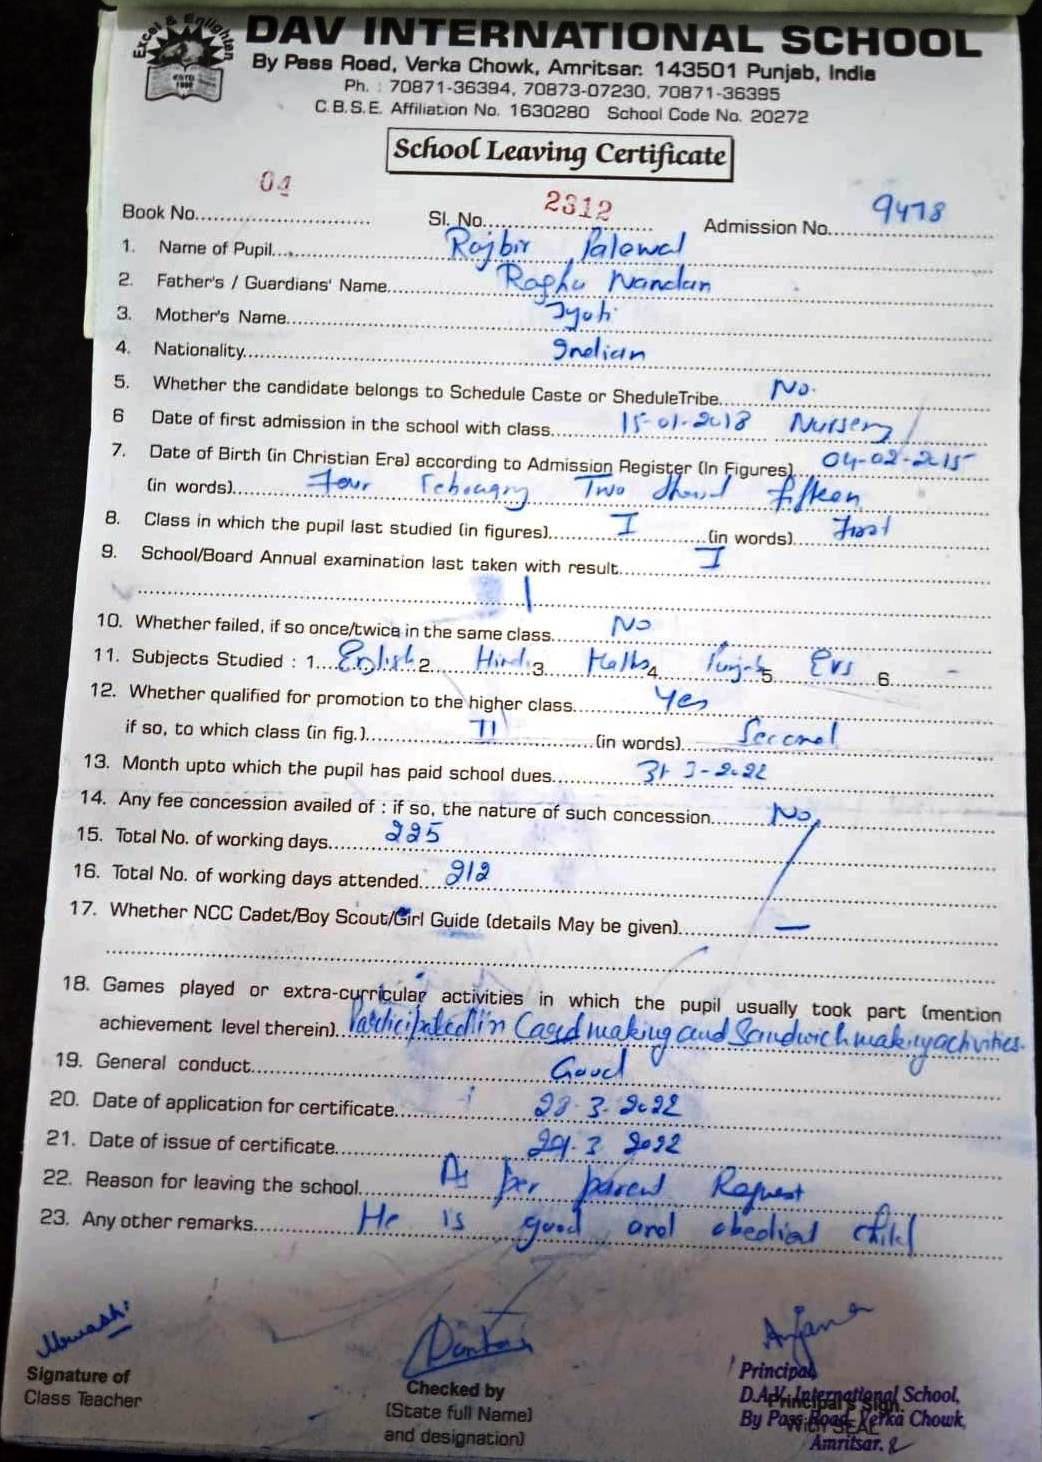 Excel & Enlighten
ESTD.
DAV INTERNATIONAL SCHOOL
By Pass Road, Verka Chowk, Amritsar. 143501 Punjab, India
Ph. : 70871-36394, 70873-07230, 70871-36395
C.B.S.E. Affiliation No. 1630280 School Code No. 20272
School Leaving Certificate
Book No. 04 Sl. No. 2312 Admission No. 9478
1. Name of Pupil Rajbir Palewal
2. Father's / Guardians' Name Raghu Nandan
3. Mother's Name Jyoti
4. Nationality Indian
5. Whether the candidate belongs to Schedule Caste or SheduleTribe No.
6 Date of first admission in the school with class 15-01-2018 Nursery
7. Date of Birth (in Christian Era) according to Admission Register (In Figures) 04-02-2015
(in words) Four February Two Fifteen
8. Class in which the pupil last studied (in figures) I (in words) First
9. School/Board Annual examination last taken with result I
10. Whether failed, if so once/twice in the same class No
11. Subjects Studied : 1 English 2 Hindi 3 Maths 4 Punjabi 5 Evs 6 -
12. Whether qualified for promotion to the higher class Yes
if so, to which class (in fig.) II (in words) Second
13. Month upto which the pupil has paid school dues 31-3-2022
14. Any fee concession availed of : if so, the nature of such concession No
15. Total No. of working days 225
16. Total No. of working days attended 212
17. Whether NCC Cadet/Boy Scout/Girl Guide (details May be given) —
18. Games played or extra-curricular activities in which the pupil usually took part (mention
achievement level therein) Participated in Card making and Sandwich making activities.
19. General conduct Good
20. Date of application for certificate 28-3-2022
21. Date of issue of certificate 29-3-2022
22. Reason for leaving the school As per parent Request
23. Any other remarks He is good and obedient child
Signature of
Class Teacher
Checked by
(State full Name)
and designation)
Anjana
Principal
D.A.V. International School,
Principal's Sign.
By Pass Road, Verka Chowk,
With SEAL
Amritsar.